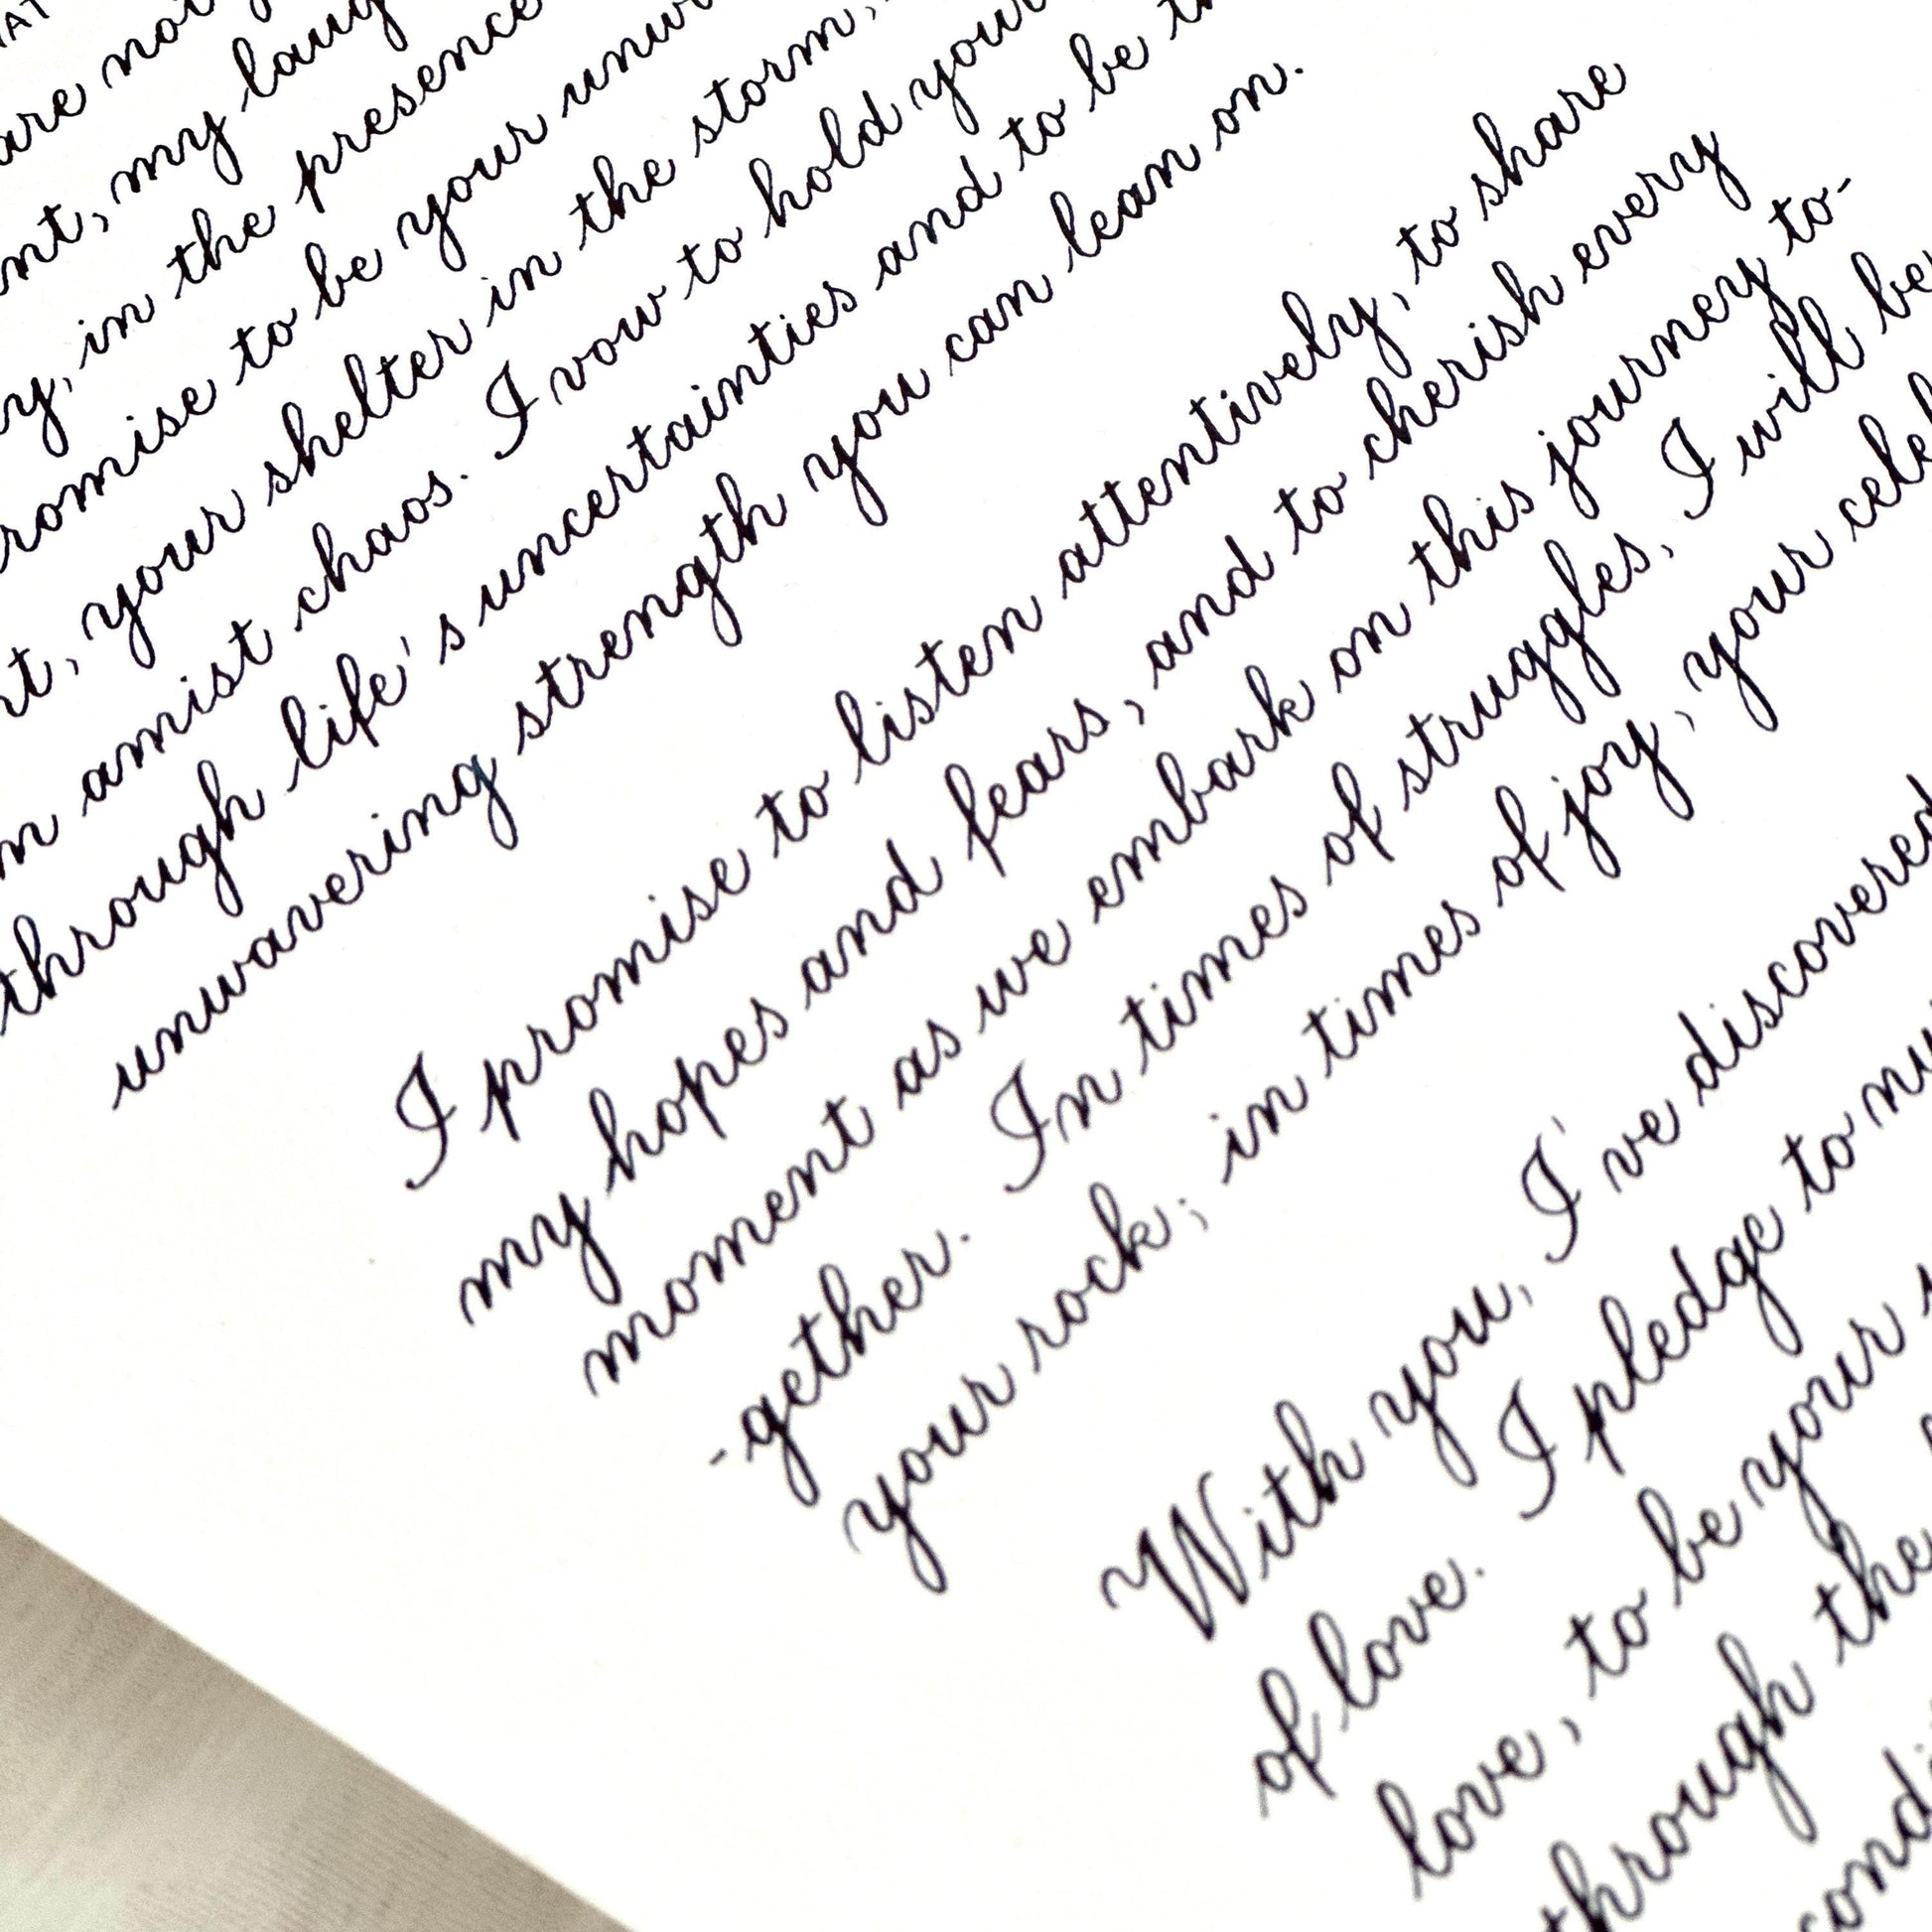 are
, my
, in the presence
to be your
, your shelter in the storm,
amist chaos. I vow to hold your
through life's uncertainties and to be
unwavering strength you can lean on.
I promise to listen attentively, to share
my hopes and fears, and to cherish every
moment as we embark on this journey to-
-gether. In times of struggles, I will be
your rock; in times of joy, your
With you, I've discovered
of love. I pledge to
love, to be your
through the